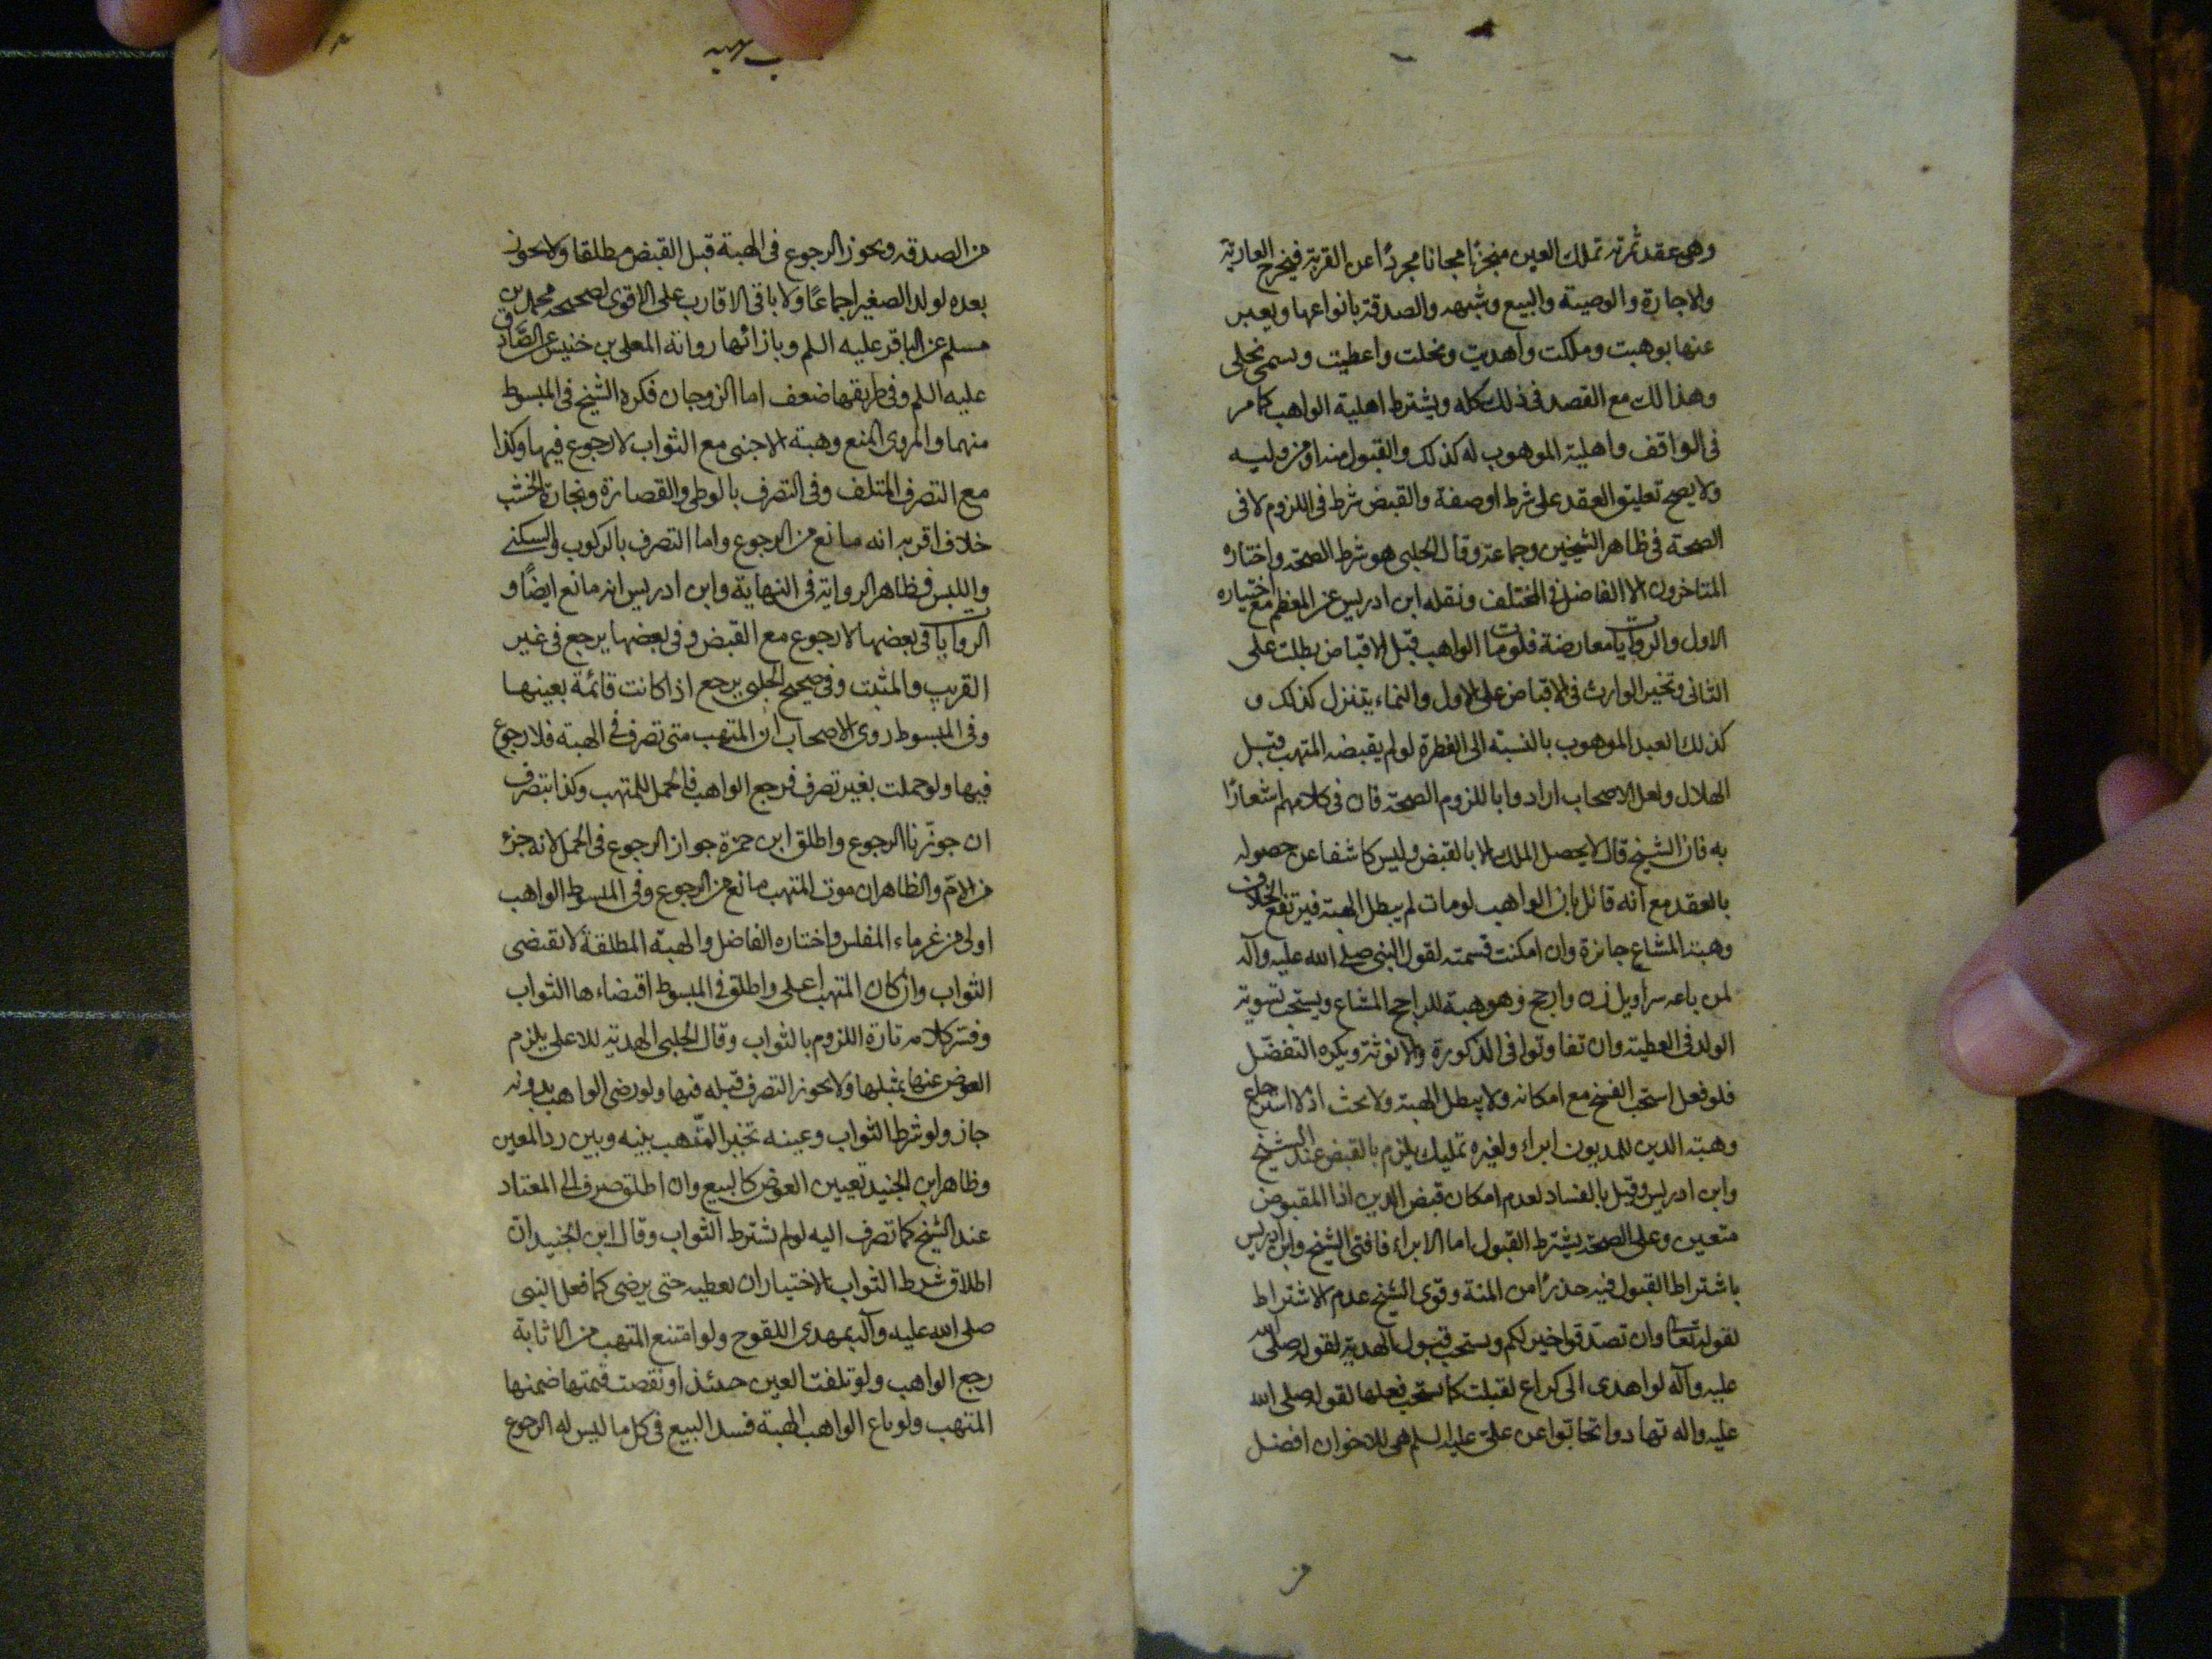 وهى عقد ثمرته تملك العين منجزا مجانا مجردا عن القربة فيخرج العارية
والاجارة والوصية والبيع وشبهه والصدقة بانواعها ويعبر
عنها بوهبت وملكت واهديت ونحلت واعطيت ويسمى نحلى
وهذا لك مع القصد فى ذلك كله ويشترط اهلية الواهب كما مر
فى الواقف واهلية الموهوب له كذلك والقبول منه او من وليه
ولا يصح تعليق العقد على شرط او صفة والقبض شرط فى اللزوم لا فى
الصحة فى ظاهر الشيخين وجماعة وقال الحلبى هو شرط الصحة واختاره
المتاخرون الا الفاضل فى المختلف ونقله ابن ادريس عن المعظم مع اختياره
الاول والروايات معارضة فلو مات الواهب قبل الاقباض بطلت على
الثانى وتخير الوارث فى الاقباض على الاول والنماء يتنزل كذلك و
كذلك العبد الموهوب بالنسبة الى الفطرة لو لم يقبضه المتهب قبل
الهلال ولعل الاصحاب ارادوا باللزوم الصحة فان فى كلامهم اشعارا
به فان الشيخ قال لا يحصل الملك الا بالقبض وليس كاشفا عن حصوله
بالعقد مع انه قائل بان الواهب لو مات لم يبطل الهبة فيرتفع الخلاف
وهبة المشاع جائزة وان امكنت قسمته لقول النبى صلى الله عليه وآله
لمن باعه سراويل زن وارجح وهو هبة للراجح المشاع ويستحب تسوية
الولد فى العطية وان تفاوتوا فى الذكورة والانوثة ويكره التفضل
فلو فعل استحب الفسخ مع امكانه ولا يبطل الهبة ولا بحث اذ لا استرجاع
وهبة الدين للمديون ابراء ولغيره تمليك يلزم بالقبض عند الشيخ
وابن ادريس وقيل بالفساد لعدم امكان قبض الدين اذا المقبوض
متعين وعلى الصحة يشترط القبول اما الابراء فافتى الشيخ وابن ادريس
باشتراط القبول فيه حذرا من المنة وقوى الشيخ عدم الاشتراط
لقوله تعالى وان تصدقوا خير لكم ويستحب قبول الهدية لقوله صلى الله
عليه وآله لو اهدى الى كراع لقبلت كما يستحب فعلها لقوله صلى الله
عليه واله تهادوا تحابوا عن على عليه السلم هى للاخوان افضل
من
من الصدقه ويجوز الرجوع فى الهبة قبل القبض مطلقا ولا يجوز
بعده لولد الصغير اجماعا ولا باقى الاقارب على الاقوى لصحيحه محمد بن
مسلم عن الباقر عليه السلم وبازائها رواية المعلى بن خنيس عن الصادق
عليه السلم وفى طريقها ضعف اما الزوجان فكره الشيخ فى المبسوط
منهما والمروى المنع وهبة الاجنبى مع الثواب لا رجوع فيها وكذا
مع التصرف المتلف وفى التصرف بالوطى والقصارة ونجارة الخشب
خلاف اقربه انه مانع من الرجوع واما التصرف بالركوب والسكنى
واللبس فظاهر الرواية فى النهاية وابن ادريس انه مانع ايضا و
الروايات فى بعضها لا رجوع مع القبض وفى بعضها يرجع فى غير
القريب والمثيب وفى صحيح الحلبى يرجع اذا كانت قائمة بعينها
وفى المبسوط روى الاصحاب ان المتهب متى تصرف فى الهبة فلا رجوع
فيها ولو حملت بغير تصرف فرجع الواهب فالحمل للمتهب وكذا بتصرف
ان جوزنا الرجوع واطلق ابن حمزة جواز الرجوع فى الحمل لانه جزء
من الام والظاهر ان موت المتهب مانع من الرجوع وفى المبسوط الواهب
اولى من غرماء المفلس واختاره الفاضل والهبة المطلقة لا تقتضى
الثواب وان كان المتهب اعلى واطلق فى المبسوط اقتضاءها الثواب
وفسر كلامه تارة اللزوم بالثواب وقال الحلبى الهدية للاعلى يلزم
العوض عنها بمثلها ولا يجوز التصرف قبله فيها ولو رضى الواهب بدونه
جاز ولو شرط الثواب وعينه تخير المتهب بينه وبين رد المعين
وظاهر ابن الجنيد تعيين العوض كالبيع وان اطلق صرف الى المعتاد
عند الشيخ كما تصرف اليه لو لم تشترط الثواب وقال ابن الجنيد ان
اطلاق شرط الثواب الاختيار ان يعطيه حتى يرضى كما فعل النبى
صلى الله عليه وآله بمهدى اللقوح ولو امتنع المتهب من الاثابة
رجع الواهب ولو تلفت العين حينئذ او نقصت قيمتها ضمنها
المتهب ولو باع الواهب الهبة فسد البيع فى كل ما ليس له الرجوع